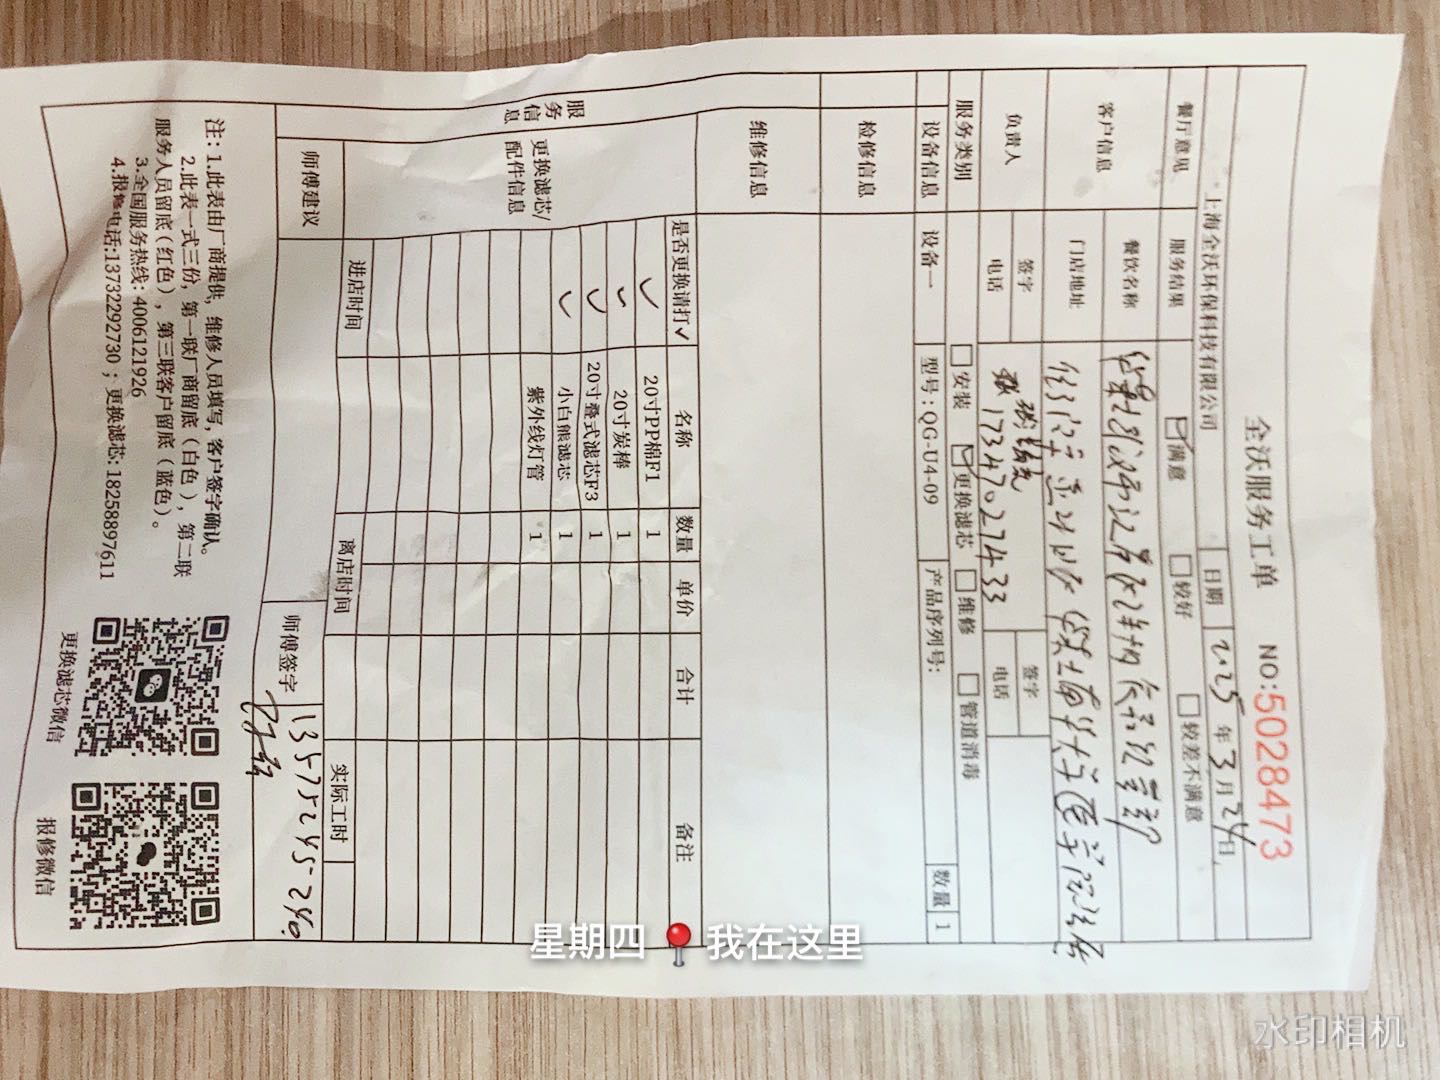 全沃服务工单 NO:5028473
上海全沃环保科技有限公司 日期 2025年3月24日
餐厅意见 服务结果 ☑满意 □较好 □较差不满意
客户信息 餐饮名称
门店地址
负责人 签字 签字
电话 17347027433 电话
服务类别 □安装 ☑更换滤芯 □维修 □管道消毒
设备信息 设备一 型号:QG-U4-09 产品序列号: 数量 1
检修信息
维修信息
服务信息
更换滤芯/配件信息
是否更换请打✓ 名称 数量 单价 合计 备注
✓ 20寸PP棉F1 1
✓ 20寸炭棒 1
✓ 20寸叠式滤芯F3 1
✓ 小白熊滤芯 1
紫外线灯管 1
进店时间 离店时间 实际工时
师傅建议 师傅签字 13575245240
注: 1.此表由厂商提供, 维修人员填写, 客户签字确认。
2.此表一式三份, 第一联厂商留底(白色), 第二联
服务人员留底(红色), 第三联客户留底(蓝色)。
3.全国服务热线: 4006121926
4.报修电话:13732292730 ; 更换滤芯: 18258897611
更换滤芯微信 报修微信
星期四 我在这里
水印相机